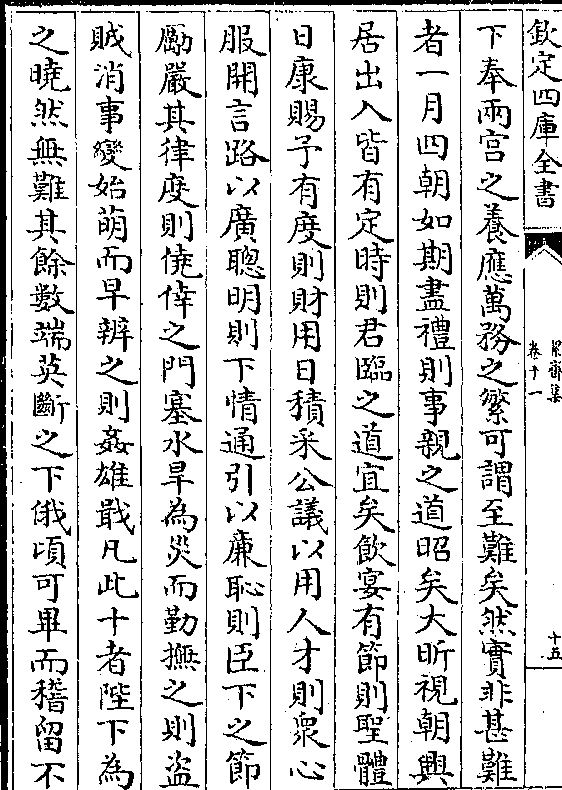 欽定四庫全書
卷十一
十五
下奉兩宫之養應萬務之繁可謂至難矣然實非甚難
者一月四朝如期盡禮則事親之道昭矣大昕視朝興
居出入皆有定時則君臨之道宜矣飲宴有節則聖體
日康賜予有度則財用日積采公議以用人才則衆心
服開言路以廣聰明則下情通引以亷恥則臣下之節
勵嚴其律度則僥倖之門塞水旱為災而勤撫之則盗
賊消事變始萌而早辨之則姦雄戢凡此十者陛下為
之曉然無難其餘數端英斷之下俄頃可畢而稽留不